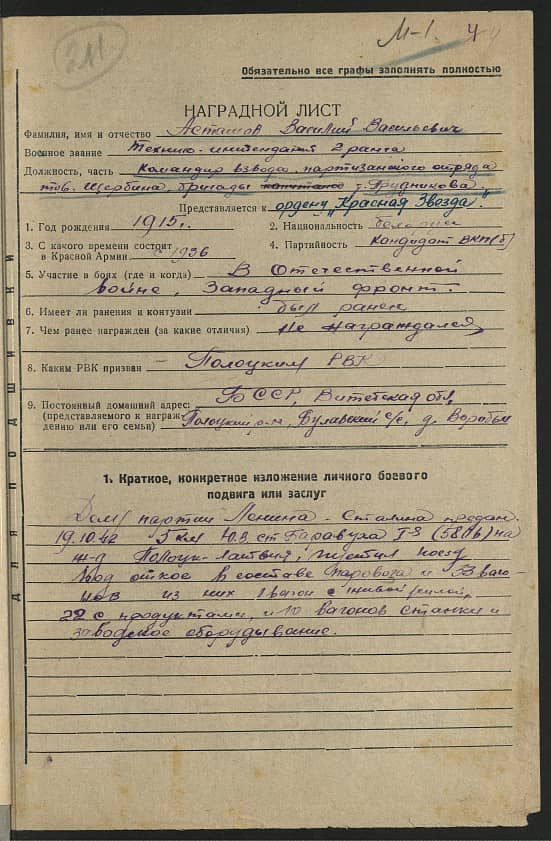 211
М-1. 4
Обязательно все графы заполнять полностью
НАГРАДНОЙ ЛИСТ
Фамилия, имя и отчество Асташов Василий Васильевич
Военное звание Технико-интендант 2 ранга
Должность, часть Командир взвода, партизанского отряда
тов. Щербина, бригады т. Прудникова
Представляется к ордену "Красная Звезда".
1. Год рождения 1915г. 2. Национальность белорус
3. С какого времени состоит 4. Партийность Кандидат ВКП(б)
в Красной Армии с 1936
5. Участие в боях (где и когда) В Отечественной
войне, Западный фронт.
6. Имеет ли ранения и контузии был ранен
7. Чем ранее награжден (за какие отличия) Не награждался
8. Каким РВК призван Полоцким РВК
9. Постоянный домашний адрес: БССР, Витебская обл,
(представляемого к награж-
дению или его семьи) Полоцкий р-н, с/с, д.
ДЛЯ ПОДШИВКИ
1. Краткое, конкретное изложение личного боевого
подвига или заслуг
Делу партии Ленина - Сталина предан.
19.10.42 5 км Ю.В ст на
ж-д Полоцк-Латвия, пустил поезд
под откос в составе паровоза и 33 ваго-
нов из них 1 вагон с живой силой,
22 с продуктами, и 10 вагонов станки и
заводское оборудывание.